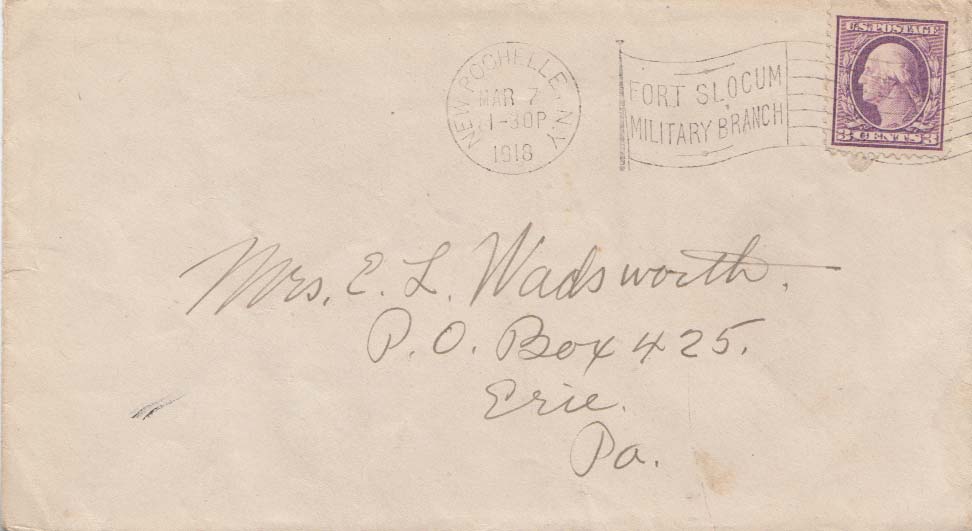 NEW ROCHELLE, N.Y.
MAR 7
1-30P
1918
FORT SLOCUM
MILITARY BRANCH
U.S. POSTAGE
3 CENTS 3
Mrs. E. L. Wadsworth.
P. O. Box 425.
Erie.
Pa.